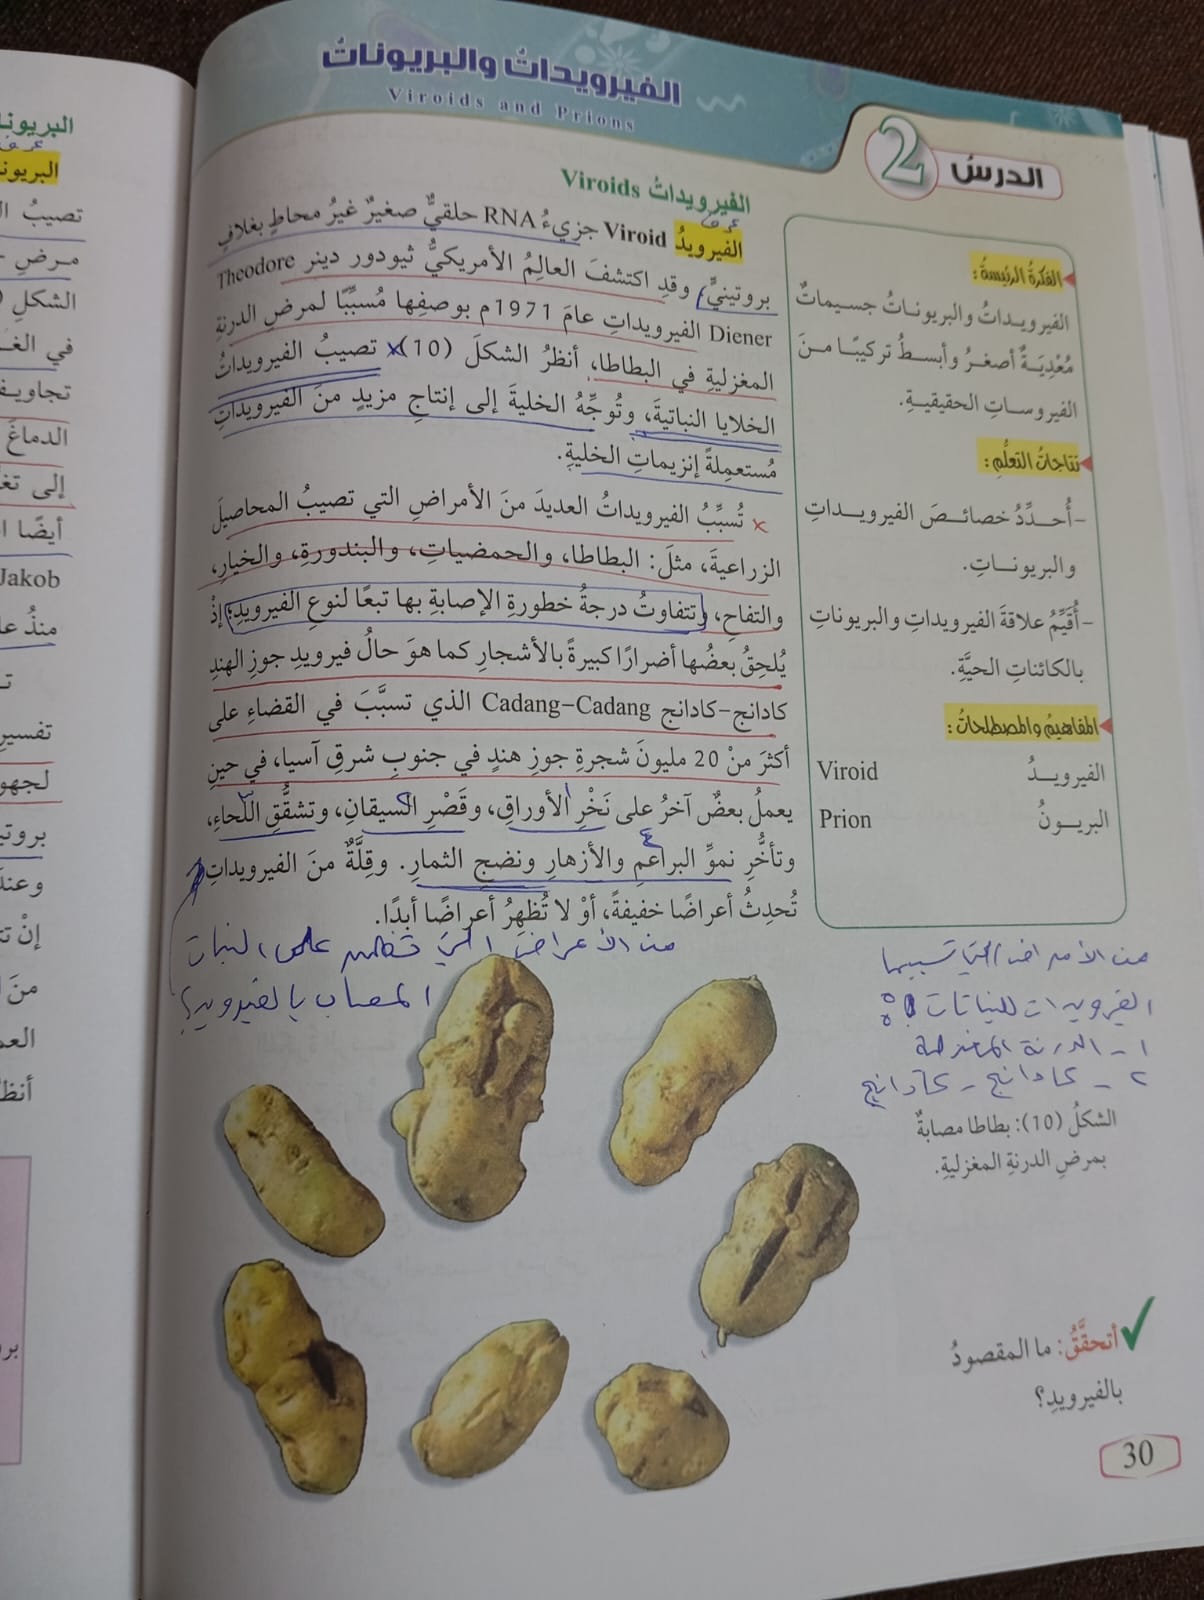 الفيرويداتُ والبريوناتُ
Viroids and Prions
الدرسُ 2
الفكرةُ الرئيسةُ:
الفيرويداتُ والبريوناتُ جسيماتٌ
مُعْدِيَةٌ أصغرُ وأبسطُ تركيبًا منَ
الفيروساتِ الحقيقيةِ.
نتاجاتُ التعلُّمِ:
-أُحدِّدُ خصائصَ الفيرويداتِ
والبريوناتِ.
-أُقيِّمُ علاقةَ الفيرويداتِ والبريوناتِ
بالكائناتِ الحيَّةِ.
المفاهيمُ والمصطلحاتُ:
الفيرويدُ Viroid
البريونُ Prion
الفيرويداتُ Viroids
عرف
الفيرويدُ Viroid جزيءُ RNA حلقيٌّ صغيرٌ غيرُ محاطٍ بغلافٍ
بروتينيٍّ، وقدِ اكتشفَ العالِمُ الأمريكيُّ ثيودور دينر Theodore
Diener الفيرويداتِ عامَ 1971م بوصفِها مُسبِّبًا لمرضِ الدرنةِ
المغزليةِ في البطاطا، أنظرُ الشكلَ (10). تصيبُ الفيرويداتُ
الخلايا النباتيةَ، وتُوجِّهُ الخليةَ إلى إنتاجِ مزيدٍ منَ الفيرويداتِ
مُستعمِلةً إنزيماتِ الخليةِ.
تُسبِّبُ الفيرويداتُ العديدَ منَ الأمراضِ التي تصيبُ المحاصيلَ
الزراعيةَ، مثلَ: البطاطا، والحمضياتِ، والبندورةِ، والخيارِ،
والتفاحِ، وتتفاوتُ درجةُ خطورةِ الإصابةِ بها تبعًا لنوعِ الفيرويدِ؛ إذْ
يُلحِقُ بعضُها أضرارًا كبيرةً بالأشجارِ كما هوَ حالُ فيرويدِ جوزِ الهندِ
كادانج-كادانج Cadang-Cadang الذي تسبَّبَ في القضاءِ على
أكثرَ منْ 20 مليونَ شجرةِ جوزِ هندٍ في جنوبِ شرقِ آسيا، في حينِ
يعملُ بعضٌ آخرُ على نَخْرِ الأوراقِ، وقَصْرِ السيقانِ، وتشقُّقِ اللِّحاءِ،
وتأخُّرِ نموِّ البراعمِ والأزهارِ ونضجِ الثمارِ. وقِلَّةٌ منَ الفيرويداتِ
تُحدِثُ أعراضًا خفيفةً، أوْ لا تُظهِرُ أعراضًا أبدًا.
من الأعراض التي تظهر على النبات
المصاب بالفيرويد؟
من الأمراض التي تسببها
الفيرويدات للنباتات :
١- الدرنة المغزلية
٢- كادانج - كادانج
الشكلُ (10): بطاطا مصابةٌ
بمرضِ الدرنةِ المغزليةِ.
أتحقَّقُ: ما المقصودُ
بالفيرويدِ؟
30
عرف
تصيبُ
مرضِ
الشكلِ
الدماغَ
أيضًا
Jakob
منذُ